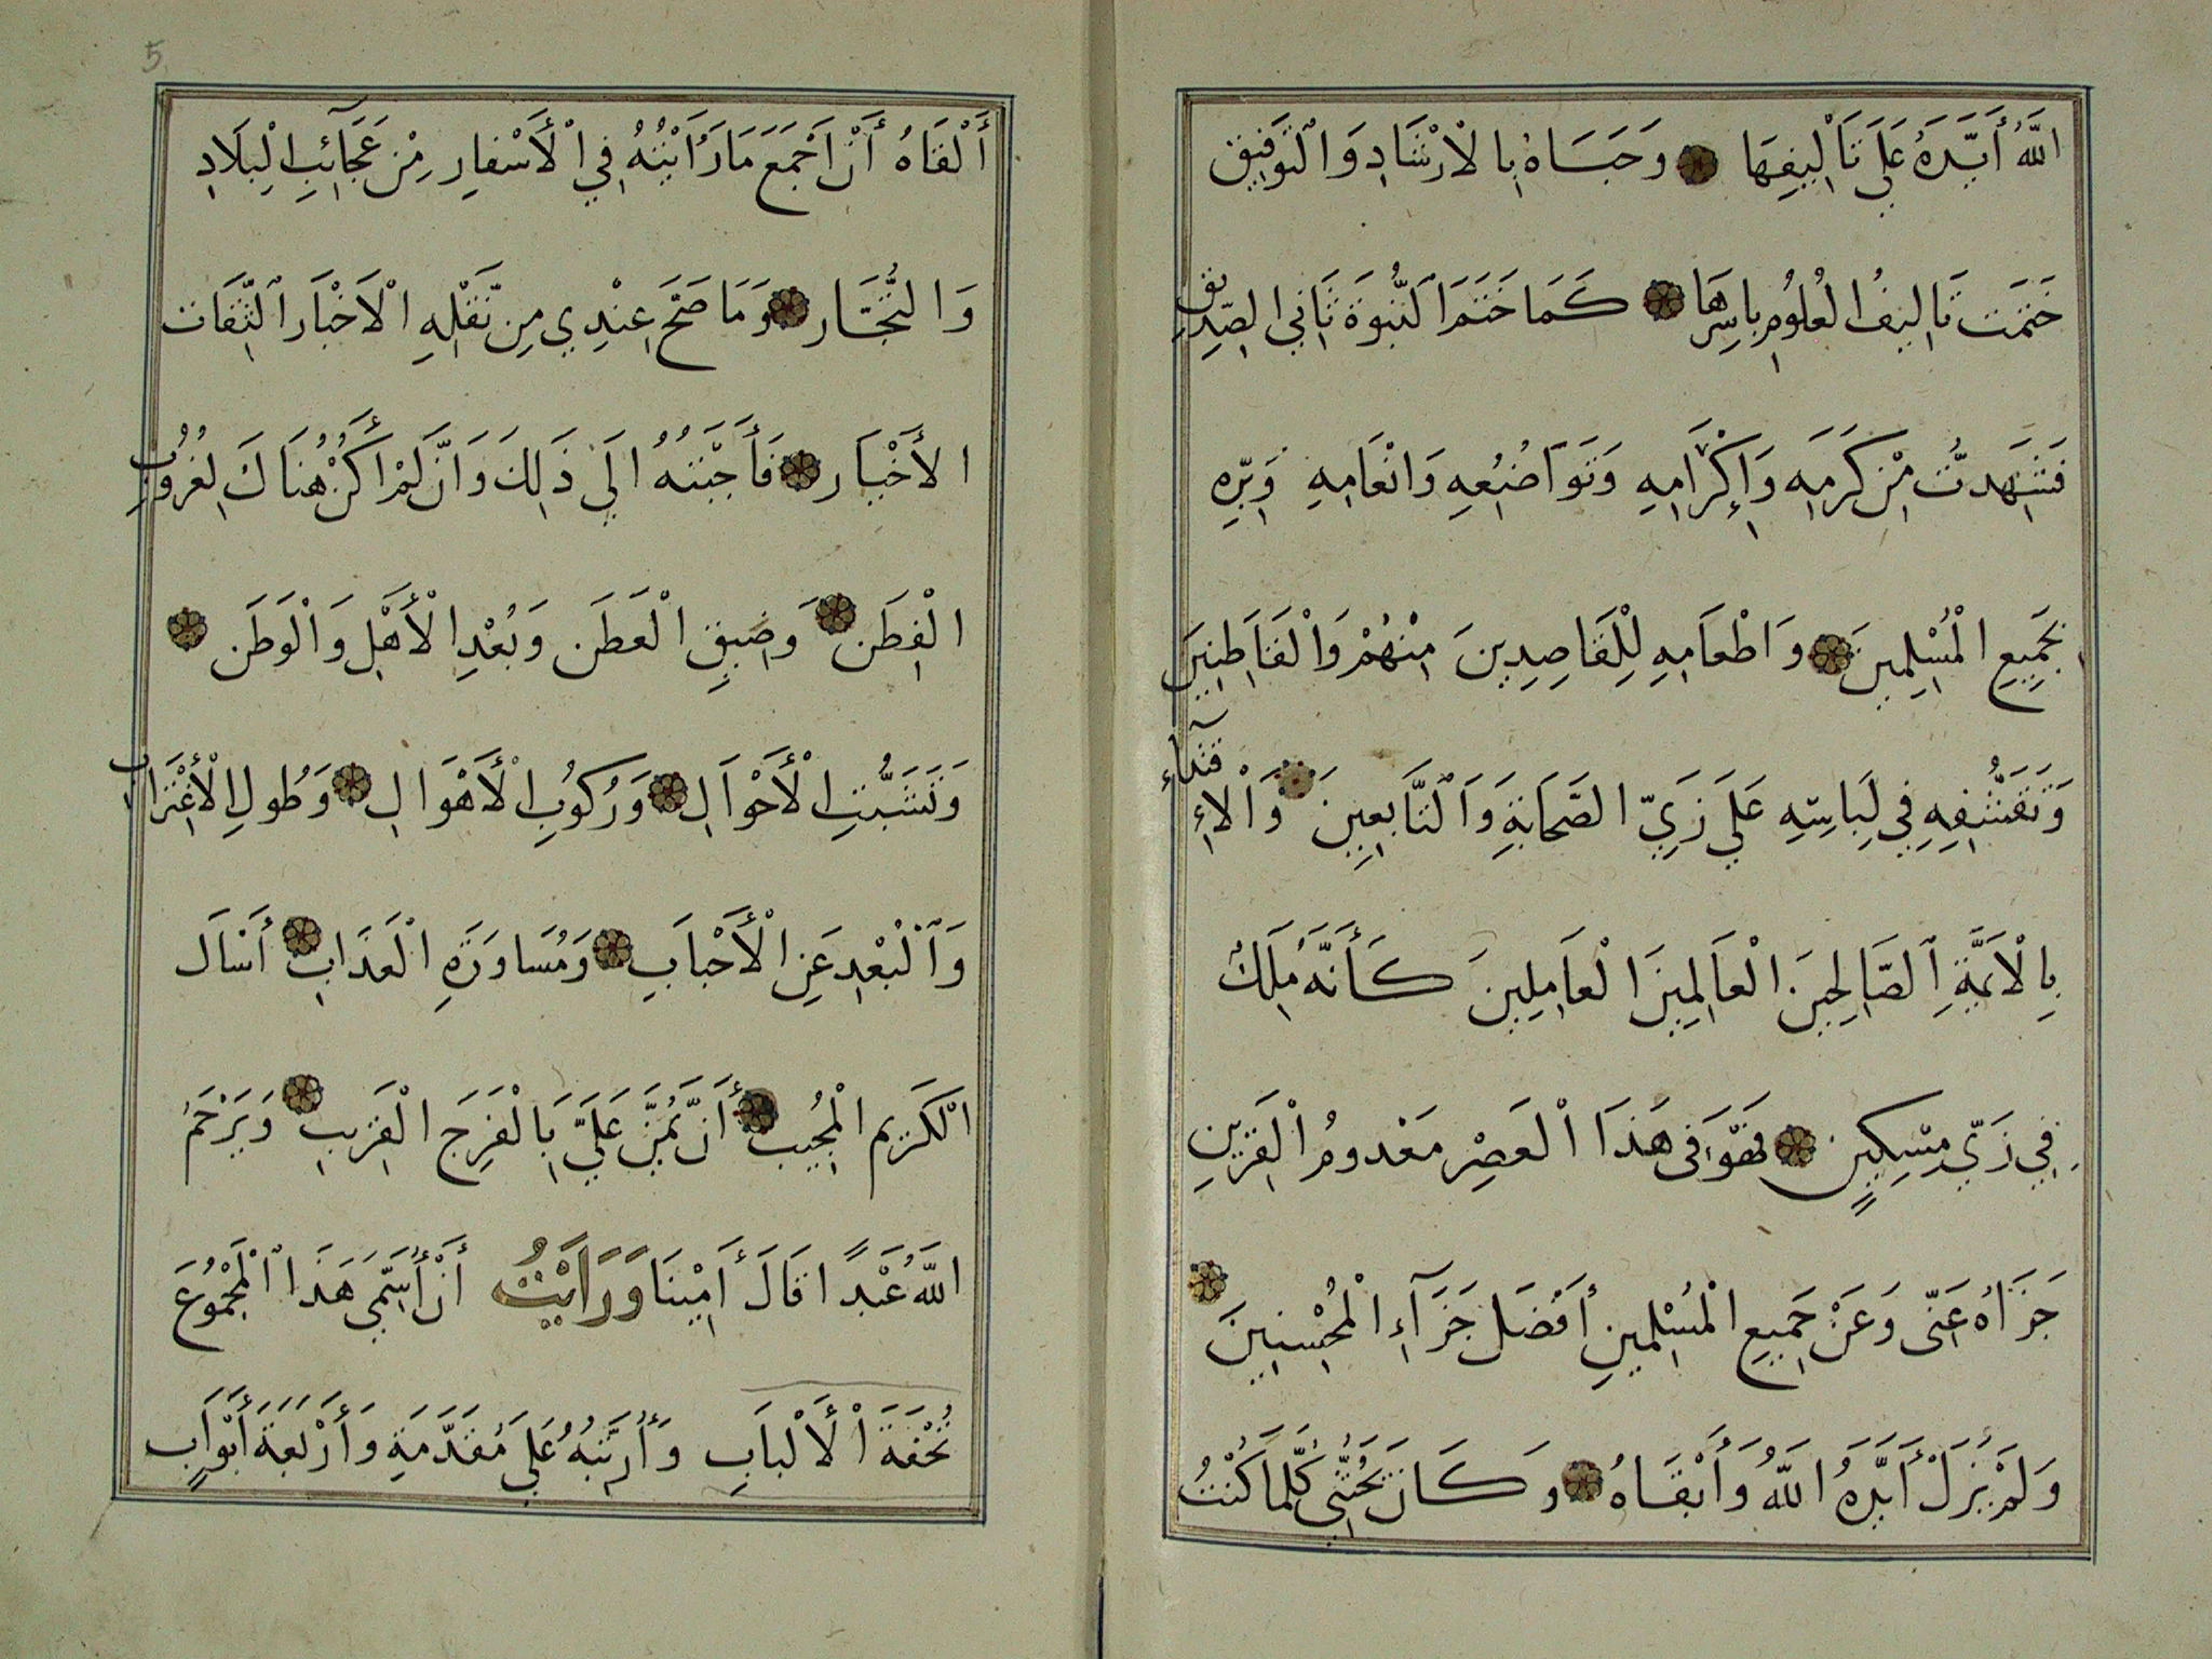 اللَّهُ أَيَّدَهُ عَلَي تَأْلِيفِهَا وَحَبَاهُ بِالْارْشَادِ وَالْتَوفِيقِ
خَتَمَت تَالِيفُ الْعُلُومِ بِاسِرِهَا كَمَا خَتَمَ الَنُّبوَةَ ثَانِي الصِدِيقِ
فَشَهِدتُّ مِنْ كَرَمِهِ وَإِكْرَامِهِ وَتَوَاضُعِهِ وَانْعَامِهِ وَبِرِّهِ
بِجَمِيعِ الْمُسْلِمِينَ وَاطْعَامِهِ لِلْقَاصِدِينَ مِنْهُمْ وَالْقَاطِنِينَ
وَتَقَشُّفِهِ فِي لِبَاسِهِ عَلَي زَيِّ الصَّحَابَةِ وَالتَّابِعِينَ وَالْاِقتدَآءِ
بِالْاَئمَّةِ الصَّالِحِينَ الْعَالِمِينَ الْعَامِلِينَ كَأَنَّهُ مَلِكٌ
فِي زَيِّ مِسْكِينٍ فَهَوَ فى هَذَا الْعَصِرْ مَعْدومُ الْقَرِينِ
جَزَاهُ عَنّى وَعَنْ جَمِيعِ الْمُسْلِمينِ أَفْضَلَ جَزَآءِ الْمُحْسِنِينَ
وَلَمْ يَزَلْ أَيَّدَهُ اللَّهُ وَأَبْقَاهُ وَكَانَ يَحُثُّنِى كُلَّمَا كُنْتُ
أَلْقَاهُ أَنْ اَجْمَعَ مَا رَأَيْتُهُ فِي الْأَسْفَارِ مِنْ عَجَآئِبِ الْبِلَادِ
وَالتُّجَّار وَمَا صَحَّ عِنْدِي مِن نَّقْلِهِ الْاَخْبَار الثِّقَات
الأَخْيَار فَأَجَبْتهُ الَي ذَلِكَ وَانَّ لَمْ اَكُنْ هُنَاكَ لِغُرُوبِ
الْفِطَن وَضِيقِ الْعَطَن وَبُعْدِ الْأَهْلِ وَالْوَطَن
وَتَشَتُّتِ الْأَحْوَالِ وَرُكُوبِ الْأَهْوَالِ وَطُولِ الْأغْتَرابِ
وَالْبُعْدِ عَنِ الْأَحْبَابِ وَمُسَاوَرَةِ الْعَذَابِ أَسْاَلَ
الْكَرِيم الْمُجِيب أَنّ يَمُنَّ عَلَيَّ بِالْفَرَجِ الْقَرِيبِ وَيَرْحَمُ
اللَّهُ عَبْدًا قَالَ أَمِيْنَا وَرَايْتُ أَنْ أُسَمِّيَ هَذَا الْمَجْمُوعَ
تُحْفَةَ الْأَلْبَابِ وَأُرَتّبهُ عَلَي مُقَدَّمَةٍ وَأَرْبَعَةَ أَبْوَابٍ
5